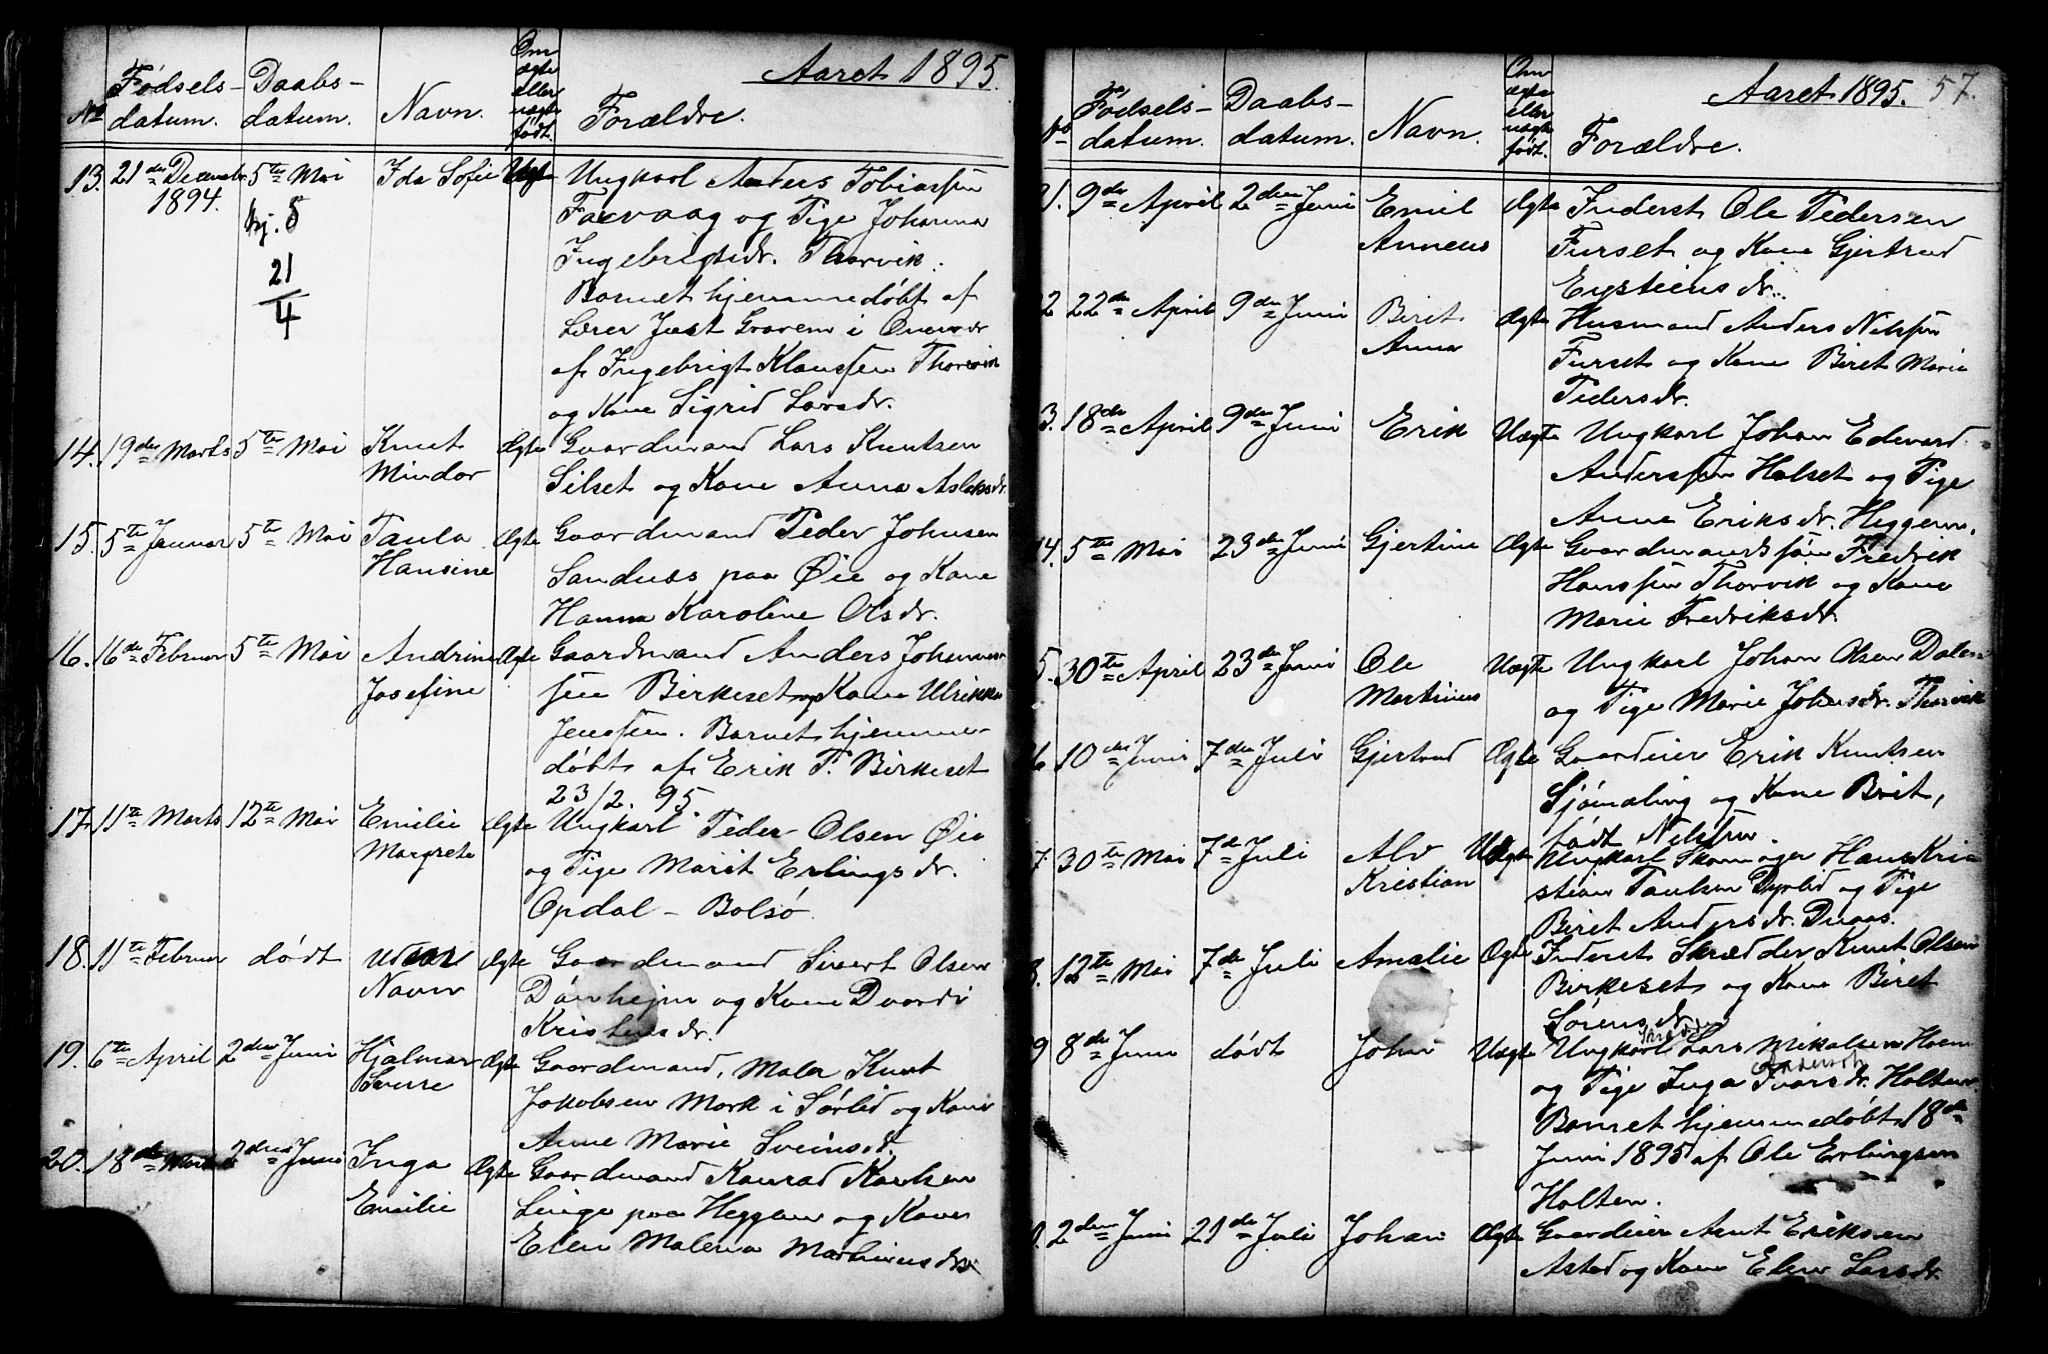 Aaret 1895.
No Fødsels-datum. Daabs-datum. Navn. Om ægte eller uægte født. Forældre.
13. 21de Decembr 5te Mai Ida Sofie Uægte Ungkarl Anders Tobiassen
1894. hj. 5 Farvaag og Pige Johanna
21/4 Ingebrigtsdr. Thorvik.
Barnet hjemmedøbt af
Lærer Just Gravem i Overvær
af Ingebrigt Klaussen Thorvik
og Kone Sigrid Larsdr.
14. 19de Marts 5te Mai Knut Ægte Gaardmand Lars Knutsen
Mindor Silset og Kone Anna Aslaksdr.
15. 5te Januar 5te Mai Paula Ægte Gaardmand Peder Johnsen
Hansine Sandnes paa Øie og Kone
Hanna Karoline Olsdr.
16. 16de Februar 5te Mai Andrine Ægte Gaardmand Anders Johannes-
Josefine sen Birkeset og Kone Ulrikke
Jenssen. Barnet hjemme-
døbt af Erik P. Birkeset
23/2. 95.
17. 11te Marts 12te Mai Emilie Ægte Ungkarl Peder Olsen Øie
Margrete og Pige Marit Erlingsdr.
Opdal - Bolsø.
18. 11te Februar dødt uden Ægte Gaardmand Sivert Olsen
Navn Dønhejm og Kone Dvordi
Kristensdr.
19. 6te April 2den Juni Hjalmar Ægte Gaardmand, Maler Knut
Sverre Jakobsen Mork i Sørlid og Kone
Anne Marie Sveinsdr.
20. 18de Marts 2den Juni Inga Ægte Gaardmand Konrad Karlsen
Emilie Linge paa Heggem og Kone
Elen Malena Martinusdr.
Aaret 1895. 57.
No Fødsels-datum. Daabs-datum. Navn. Om ægte eller uægte født. Forældre.
1. 9de April 2den Juni Emil Ægte Inderst Ole Pedersen
Anneus Furset og Kone Gjertrud
Eysteinsdr.
2 22de April 9de Juni Birit Ægte Husmand Anders Nilssen
Anna Furset og Kone Biret Marie
Pedersdr.
3. 18de April 9de Juni Erik Uægte Ungkarl Johan Edvard
Anderssen Halset og Pige
Anne Eriksdr. Heggem.
4. 5te Mai 23de Juni Gjertine Ægte Gaardmandssøn Fredrik
Hanssen Thorvik og Kone
Marie Fredriksdr.
5. 30te April 23de Juni Ole Uægte Ungkarl Johan Olsen Dalen
Martinus og Pige Marie Johnsdr. Thorvik
6 10de Juni 7de Juli Gjertrud Ægte Gaardeier Erik Knutsen
Sjømæling og Kone Brit,
født Nilssen.
7. 30te Mai 7de Juli Alv Uægte Ungkarl Skomager Hans Kri
Kristian stian Paulsen Dyrlid og Pige
Biret Andersdr. Duaas.
8. 12te Mai 7de Juli Amalie Ægte Inderst Skrædder Knut Olsen
Birkeset og Kone Biret
Sørensdr.
9 8de Juni dødt Johan Uægte Ungkarl Lars Mikalsen Hoem
og Pige Inga Ivarsdr. Holten
Barnet hjemmedøbt 18de
Juni 1895 af Ole Erlingsen
Holten.
0. 2den Juni 21de Juli Johan Ægte Gaardeier Arnt Eriksen
Astad og Kone Elen Larsdr.